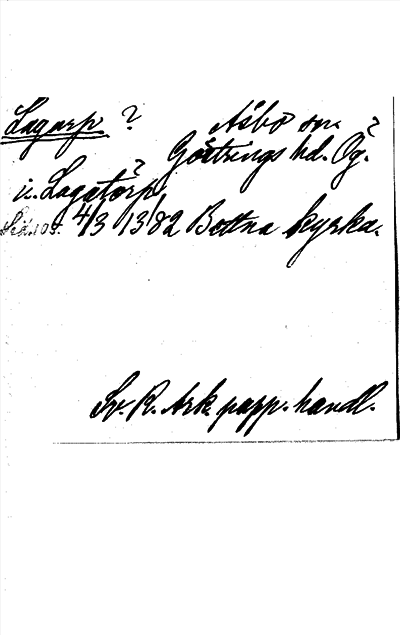 Lagarp ? Åsbo sn. ?
Göstrings hd. Ög.
i. Lagatorp ?
4/3 1382 Bottna kyrka.
Sv. R. Ark papp. handl.